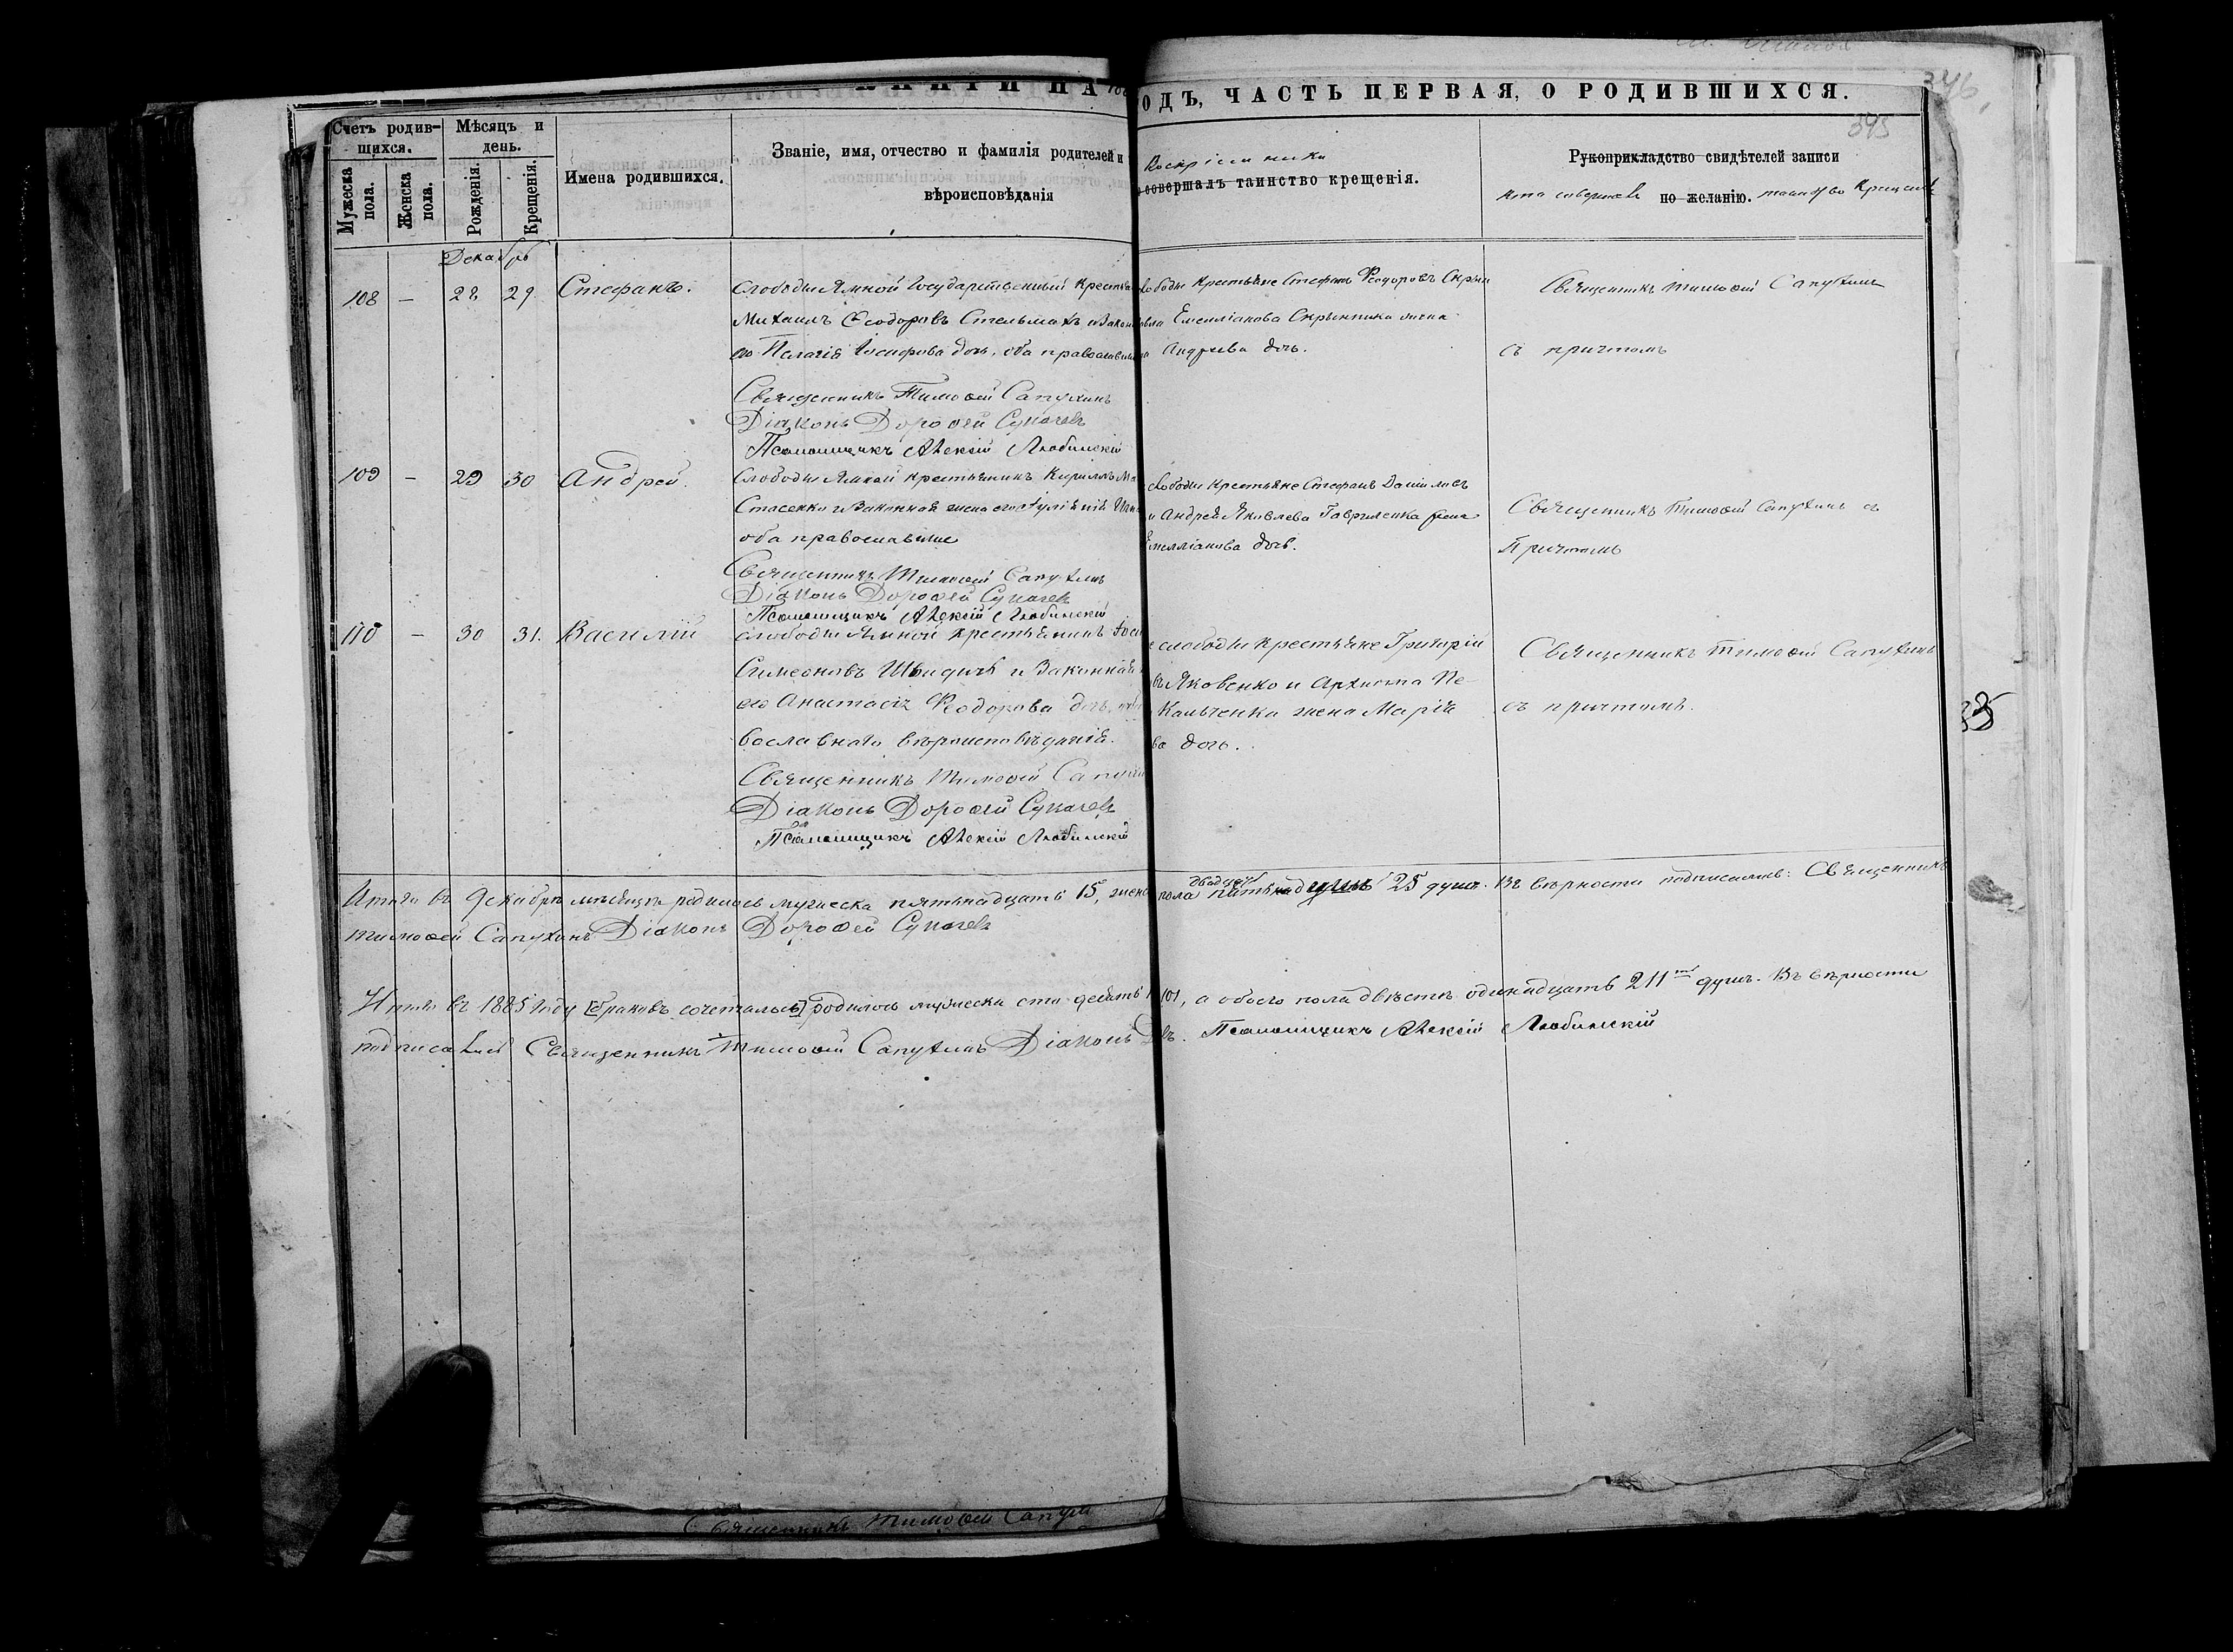 ОДЪ, ЧАСТЬ ПЕРВАЯ, О РОДИВШИХСЯ.
346
345
Счетъ родившихся.
Мужеска пола.
Женска пола.
Мѣсяцъ и день.
Рожденія.
Крещенія.
Имена родившихся.
Званіе, имя, отчество и фамилія родителей и
вѣроисповѣданія
совершалъ таинство крещенія.
Рукоприкладство свидѣтелей записи
по желанію.
Кто совершалъ таинство крещенія
Декабрь
108 — 28 29 Стефанъ.
Слободы Ямной Государственный крестья
Михаилъ Ѳеодоровъ Стельмахъ и закон
его Пелагія Іосифова дочь, оба православны
Священникъ Тимоѳей Сапухинъ
Діаконъ Дороѳей Сукачевъ
Псаломщикъ Алексій Любинскій
лободы крестьяне Стефанъ Ѳеодоровъ Скрын
Емелліанова Скрынника жена
Андреева дочь.
Священникъ Тимоѳей Сапухинъ
съ причтомъ
109 — 29 30 Андрей.
Слободы Ямной крестьянинъ Кириллъ
Стасенко и законная жена его Іуліянія
оба православные
Священникъ Тимоѳей Сапухинъ
Діаконъ Дороѳей Сукачевъ
Псаломщикъ Алексій Любинскій
слободы крестьяне Стефанъ Даніиловъ
и Андрея Яковлева Гавриленка жена
Емелліанова дочь.
Священникъ Тимоѳей Сапухинъ съ
причтомъ
110 — 30 31. Василій
слободы Ямной крестьянинъ
Симеоновъ Швидичъ и законная
его Анастасія Ѳеодорова дочь,
вославнаго вѣроисповѣданія.
Священникъ Тимоѳей Сапухи
Діаконъ Дороѳей Сукачевъ
Псаломщикъ Алексій Любинскій
слободы крестьяне Григорій
въ Яковенко и Архиппа Пе
Кальченка жена Марія
ва дочь.
Священникъ Тимоѳей Сапухинъ
съ причтомъ.
Итого въ Декабрѣ мѣсяцѣ родилось мужеска пятьнадцать 15, жен пола двадцать пять 25 душъ. Въ вѣрности подписались: Священникъ
Тимоѳей Сапухинъ Діаконъ Дороѳей Сукачевъ
Итого въ 1885 году [браковъ сочеталось] родилось мужеска сто десять 101, а обоего пола двѣсти одинадцать 211 душъ. Въ вѣрности
подписались Священникъ Тимоѳей Сапухинъ Діаконъ Д въ. Псаломщикъ Алексій Любинскій
Священникъ Тимоѳей Сапухи